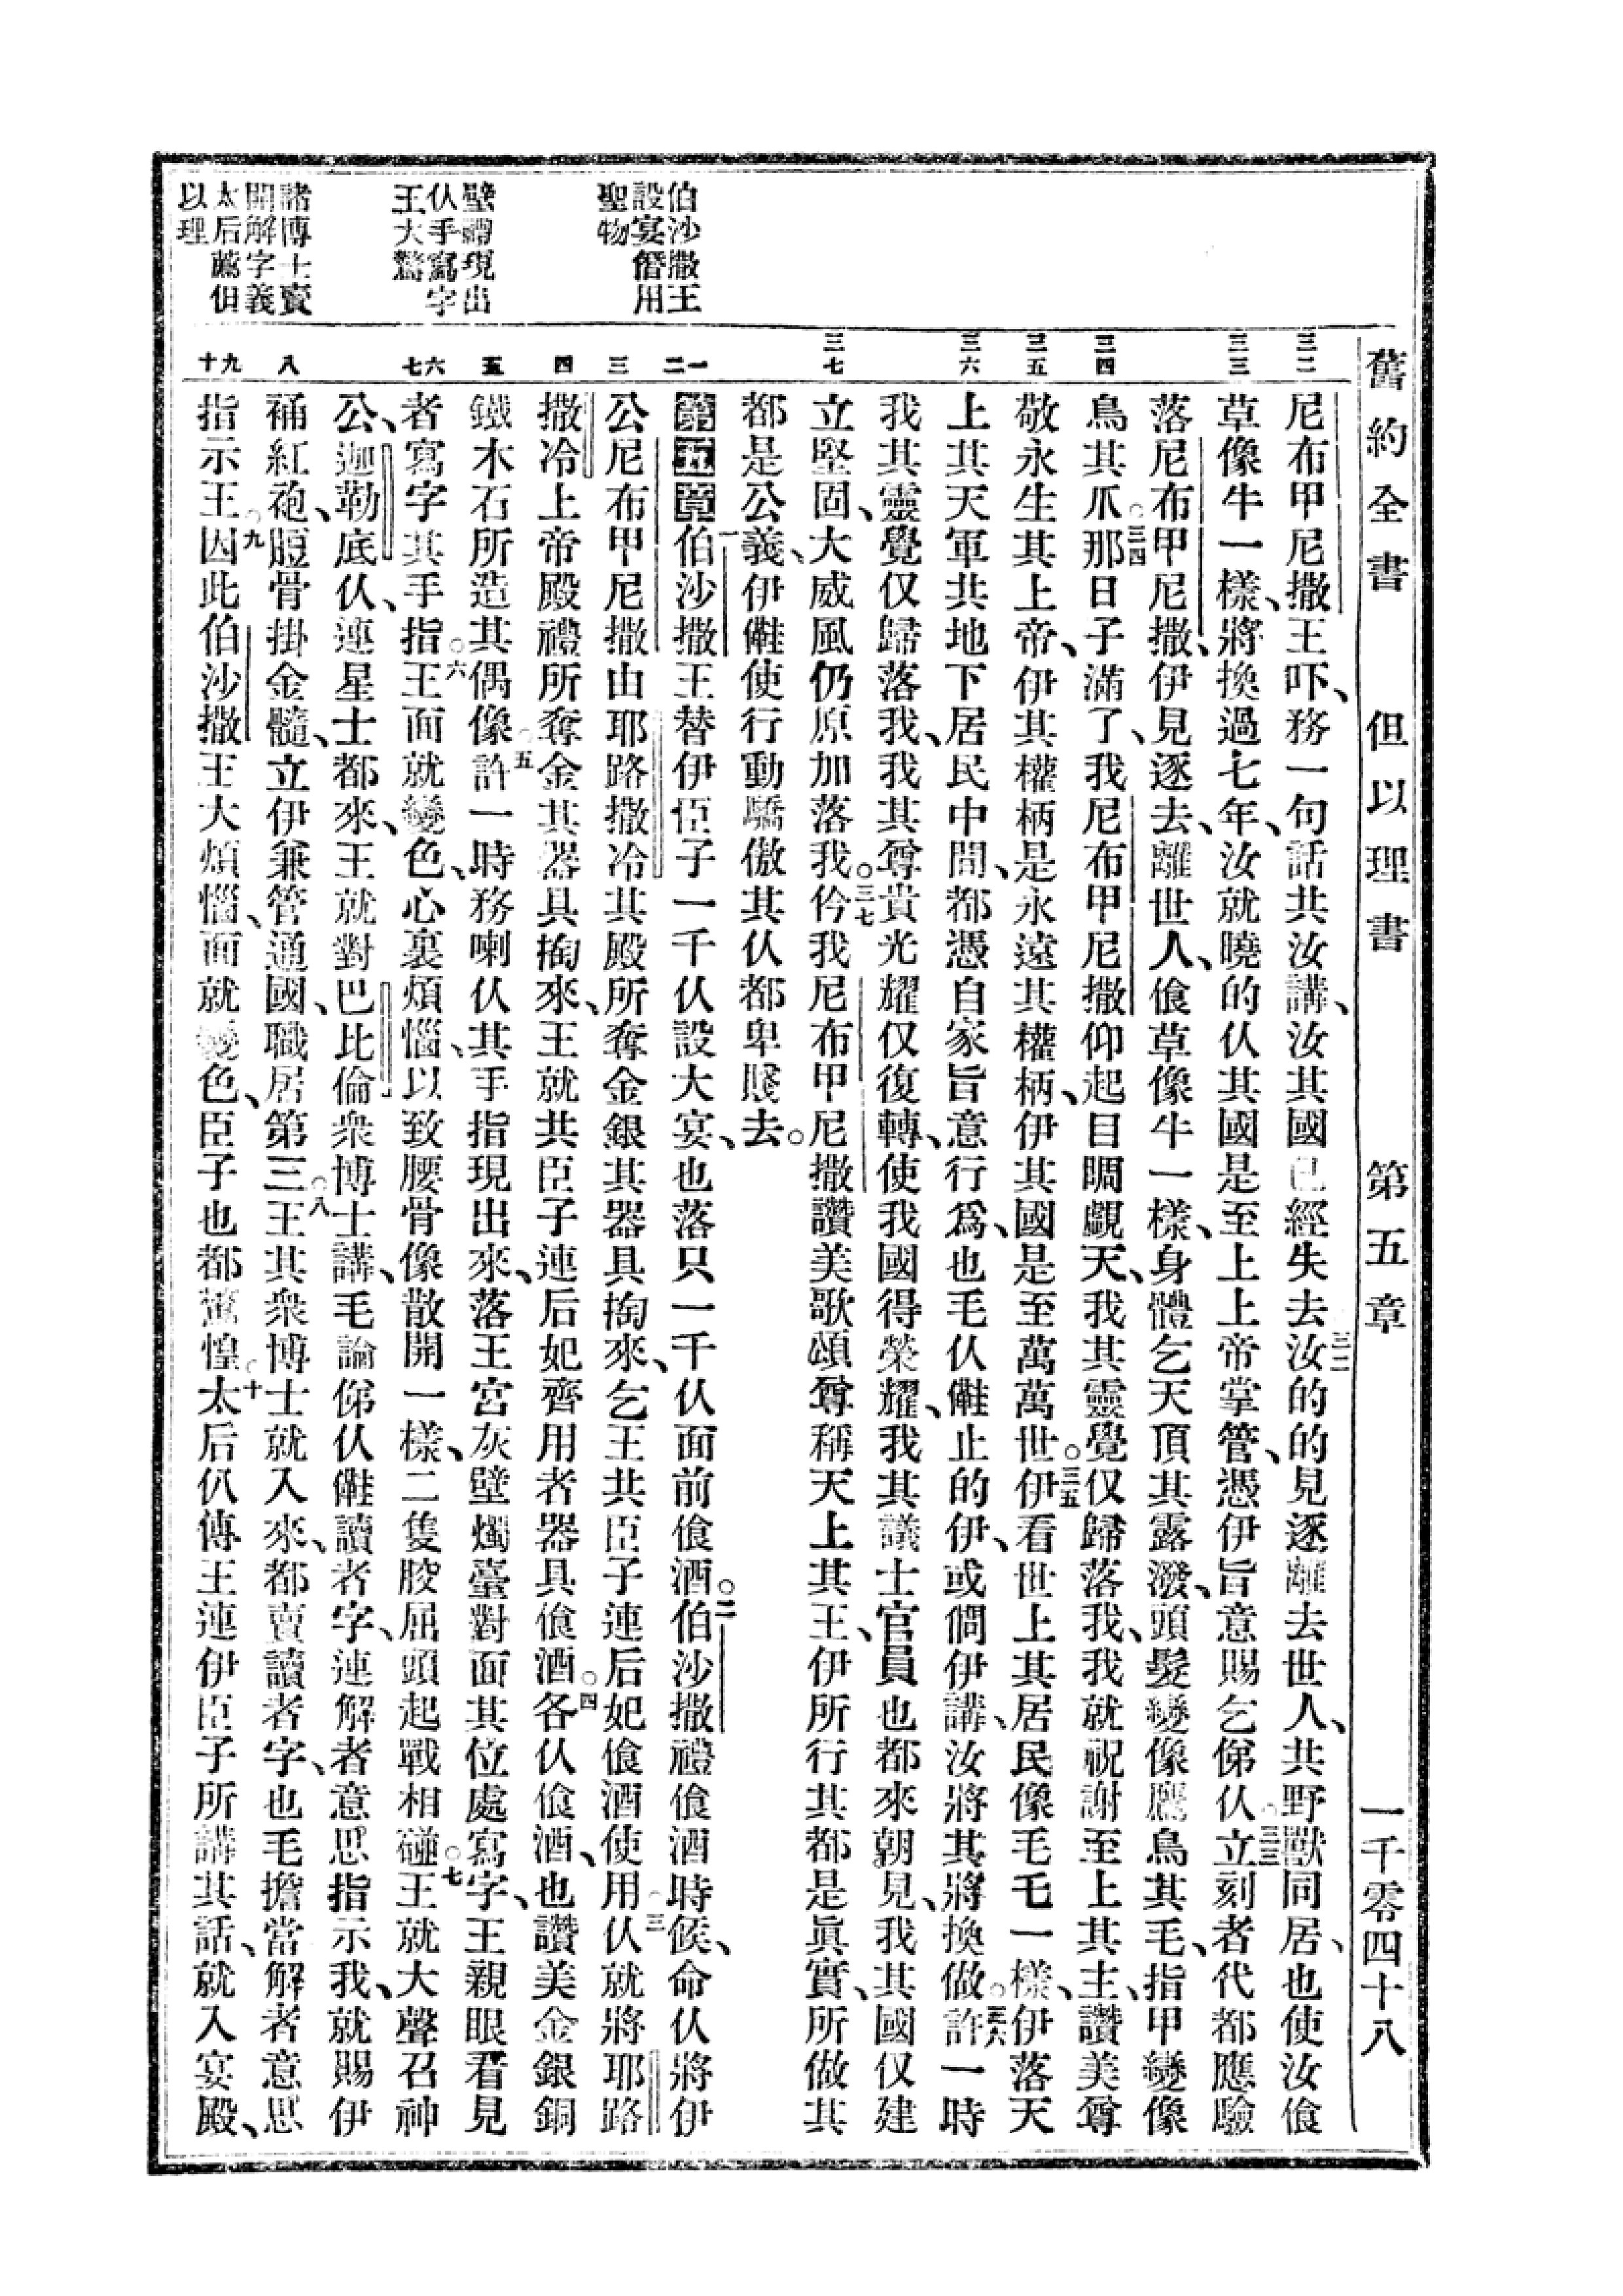 舊約全書 但以理書 第五章 一千零四十八
伯沙撒王
設宴僭用
聖物
壁禮現出
仈手寫字
王大驚
諸博士賣
開解字義
太后薦但
以理
三二 三三 三四 三五 三六 三七 一 二 三 四 五 六 七 八 九 十
尼布甲尼撒王吓、務一句話共汝講、汝其國已經失去○三二汝的的見逐離去世人、共野獸同居、也使汝飡
草像牛一樣、將換過七年、汝就曉的仈其國是至上上帝掌管、憑伊旨意賜乞俤仈○三三立刻者代都應驗
落尼布甲尼撒、伊見逐去、離世人、飡草像牛一樣、身體乞天頂其露潑、頭髮變像鷹鳥其毛、指甲變像
鳥其爪○三四那日子滿了、我尼布甲尼撒仰起目睭覷天、我其靈覺仅歸落我、我就祝謝至上其主、讚美尊
敬永生其上帝、伊其權柄是永遠其權柄、伊其國是至萬萬世○三五伊看世上其居民像毛乇一樣、伊落天
上其天軍共地下居民中間、都憑自家旨意行爲、也毛仈儺止的伊、或㑚伊講、汝將其將換做○三六許一時
我其靈覺仅歸落我、我其尊貴光耀仅復轉、使我國得榮耀、我其議士官員也都來朝見、我其國仅建
立堅固、大威風仍原加落我○三七仱我尼布甲尼撒讚美歌頌尊稱天上其王、伊所行其都是眞實、所做其
都是公義、伊𠆧使行動驕傲其仈都卑賤去。
第五章伯沙撒王替伊臣子一千仈設大宴、也落只一千仈面前飡酒○二伯沙撒禮飡酒時候、命仈將伊
公尼布甲尼撒由耶路撒冷其殿所奪金銀其器具掏來、乞王共臣子連后妃飡酒使用○三仈就將耶路
撒冷上帝殿禮所奪金其器具掏來、王就共臣子連后妃齊用者器具飡酒○四各仈飡酒、也讚美金銀銅
鐵木石所造其偶像○五許一時務喇仈其手指現出來、落王宮灰壁燭臺對面其位處寫字、王親眼看見
者寫字其手指○六王面就變色、心裏煩惱、以致腰骨像散開一樣、二隻骹屈頭起戰相碰○七王就大聲召神
公、迦勒底仈、連星士都來、王就對巴比倫衆博士講、毛論俤仈𠆧讀者字、連解者意思指示我、就賜伊
䘥紅袍、脰骨掛金髓、立伊兼管通國、職居第三○八王其衆博士就入來、都賣讀者字、也毛擔當解者意思
指示王○九因此伯沙撒王大煩惱、面就變色、臣子也都驚惶○十太后仈傳王連伊臣子所講其話、就入宴殿、